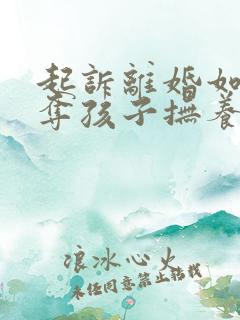 起訴離婚如
奪孩子撫養
浪冰心火
未经同意禁止转载